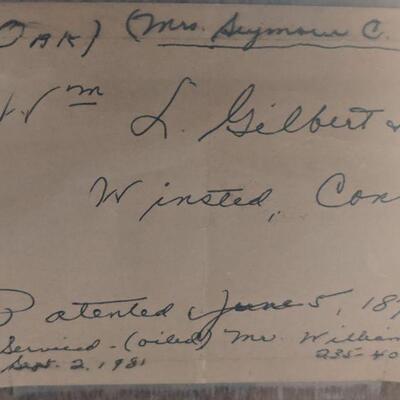 OAK) (Mrs. Seymour C.
Wm L. Gilbert
Winsted, Con
Patented June 5, 18
Serviced - (oiled) Mr. William
Sept. 2, 1981 235-40